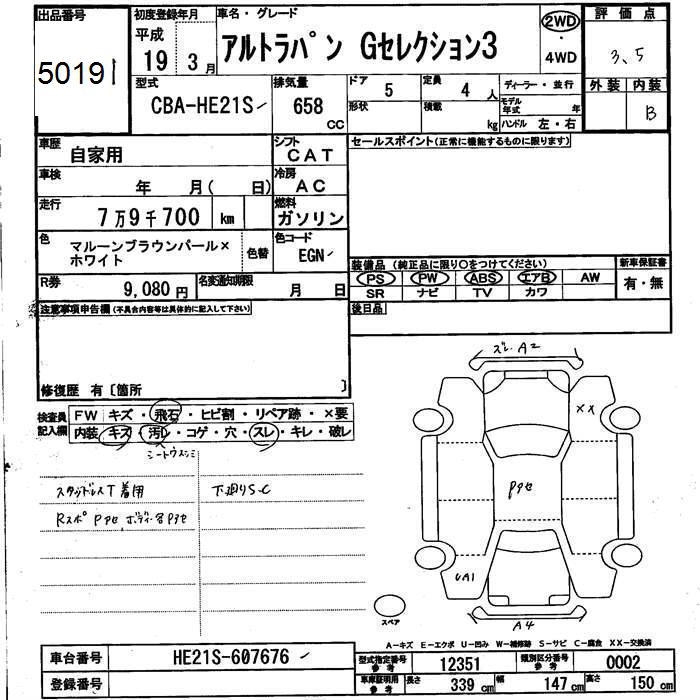 出品番号
50191
初度登録年月
平成
19年 3月
車名・グレード
アルトラパン Gセレクション3
2WD
・
4WD
評価点
3.5
外装 内装
B
型式
CBA-HE21S
排気量
658
CC
ドア 5
形状
定員 4 人
積載 kg
ディーラー・並行
モデル年式 年
ハンドル 左・右
車歴 自家用
シフト CAT
車検 年 月( 日)
冷房 AC
走行 7万9千700 km
燃料 ガソリン
色 マルーンブラウンパール×
ホワイト
色替
色コード EGN
R券 9,080円
名変通知期限 月 日
セールスポイント(正常に機能するものに限ります)
装備品(純正品に限り○をつけてください)
PS PW ABS エアB AW
SR ナビ TV カワ
新車保証書
有・無
後日品
注意事項申告欄(不具合内容等は具体的に記入して下さい)
修復歴 有〔箇所 〕
検査員
記入欄
FW キズ・飛石・ヒビ割・リペア跡・×要
内装 キズ・汚れ・コゲ・穴・スレ・キレ・破レ
スタッドレスT着用
下廻りS-C
ズレ A2
XX
Pアセ
UA1
A4
スペア
A−キズ E−エクボ U−凹み W−補修跡 S−サビ C−腐食 XX−交換済
車台番号 HE21S-607676
登録番号
型式指定番号
参考
12351
類別区分番号
参考
0002
車庫証明用
参考
長さ 339 cm
幅 147 cm
高さ 150 cm